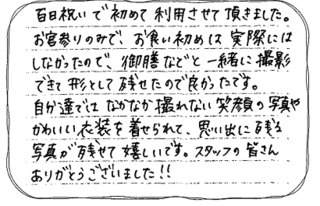 百日祝いで初めて利用させて頂きました。
お宮参りのみで、お食い初めは実際には
しなかったので、御膳などと一緒に撮影
できて形として残せたので良かったです。
自分達ではなかなか撮れない笑顔の写真や
かわいい衣装を着せられて、思い出に残る
写真が残せて嬉しいです。スタッフの皆さん
ありがとうございました!!